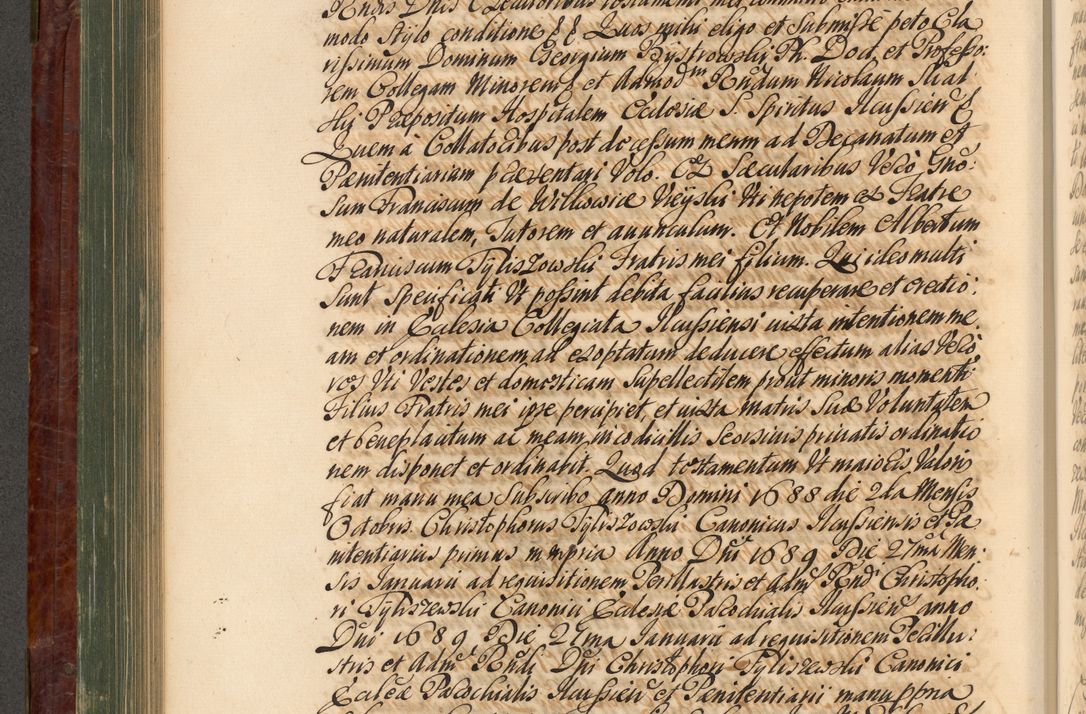 modo Stylo conditione Quos mihi eligo et Submisse peto Cla
rissimum Dominum Georgium Bystrowski Ph. Doct. et Profess:
rem Collegam Minorem, et Admodm Rndum Nicolaum
Præpositum Hospitalem Ecclesiæ S. Spiritus Ilcussien
Quem à Collatoribus post decessum meum ad Decanatum et
Pænitentiarium præsentari Volo. Ex Sæcularibus Vero Gno:
Sum Franciscum de Nieyski Uti nepotem ex Fratre
meo naturalem, Tutorem et avunculum. Et Nobilem Albertum
Franciscum Tyliszowski Fratris mei filium. Qui ideo multi
Sunt Specificati Ut possint debita facilius recuperare et eredio:
nem in Ecclesia Collegiata Ilcussiensi iuxta intentionem me
am et ordinationem ad exoptatum deducere effectum alias Vero
res Uti Vestes et domesticam Supellectilem prout minoris momenti
Filius Fratris mei ipse percipiet, et iuxta matris Suæ Voluntatem
et beneplacitum ac meam in codicillis Seorsivis privatis ordinatio
nem disponet et ordinabit. Quod testamentum Ut maioris Valoris
fiat manu mea Subscribo anno Domini 1688 die 2da Mensis
Octobris Christophorus Tyliszowski Canonicus Ilcussiensis et Pæ
nitentiarius primus m mpria Anno Dni 1689 Die 27ma Men:
sis Januarii ad requisitionem Perillustris et Adm Rnd Christopho
ri Tyliszewski Canonici Eclesiæ Parochialis Ilcussien anno
Dni 1689 Die 27ma Januarii ad requisitionem Perillu:
stris et Adm Rndi Dni Christophori Tyliszewski Canonici
Ecleæ Parochialis Ilcussien et Pænitentiarii manu ppria